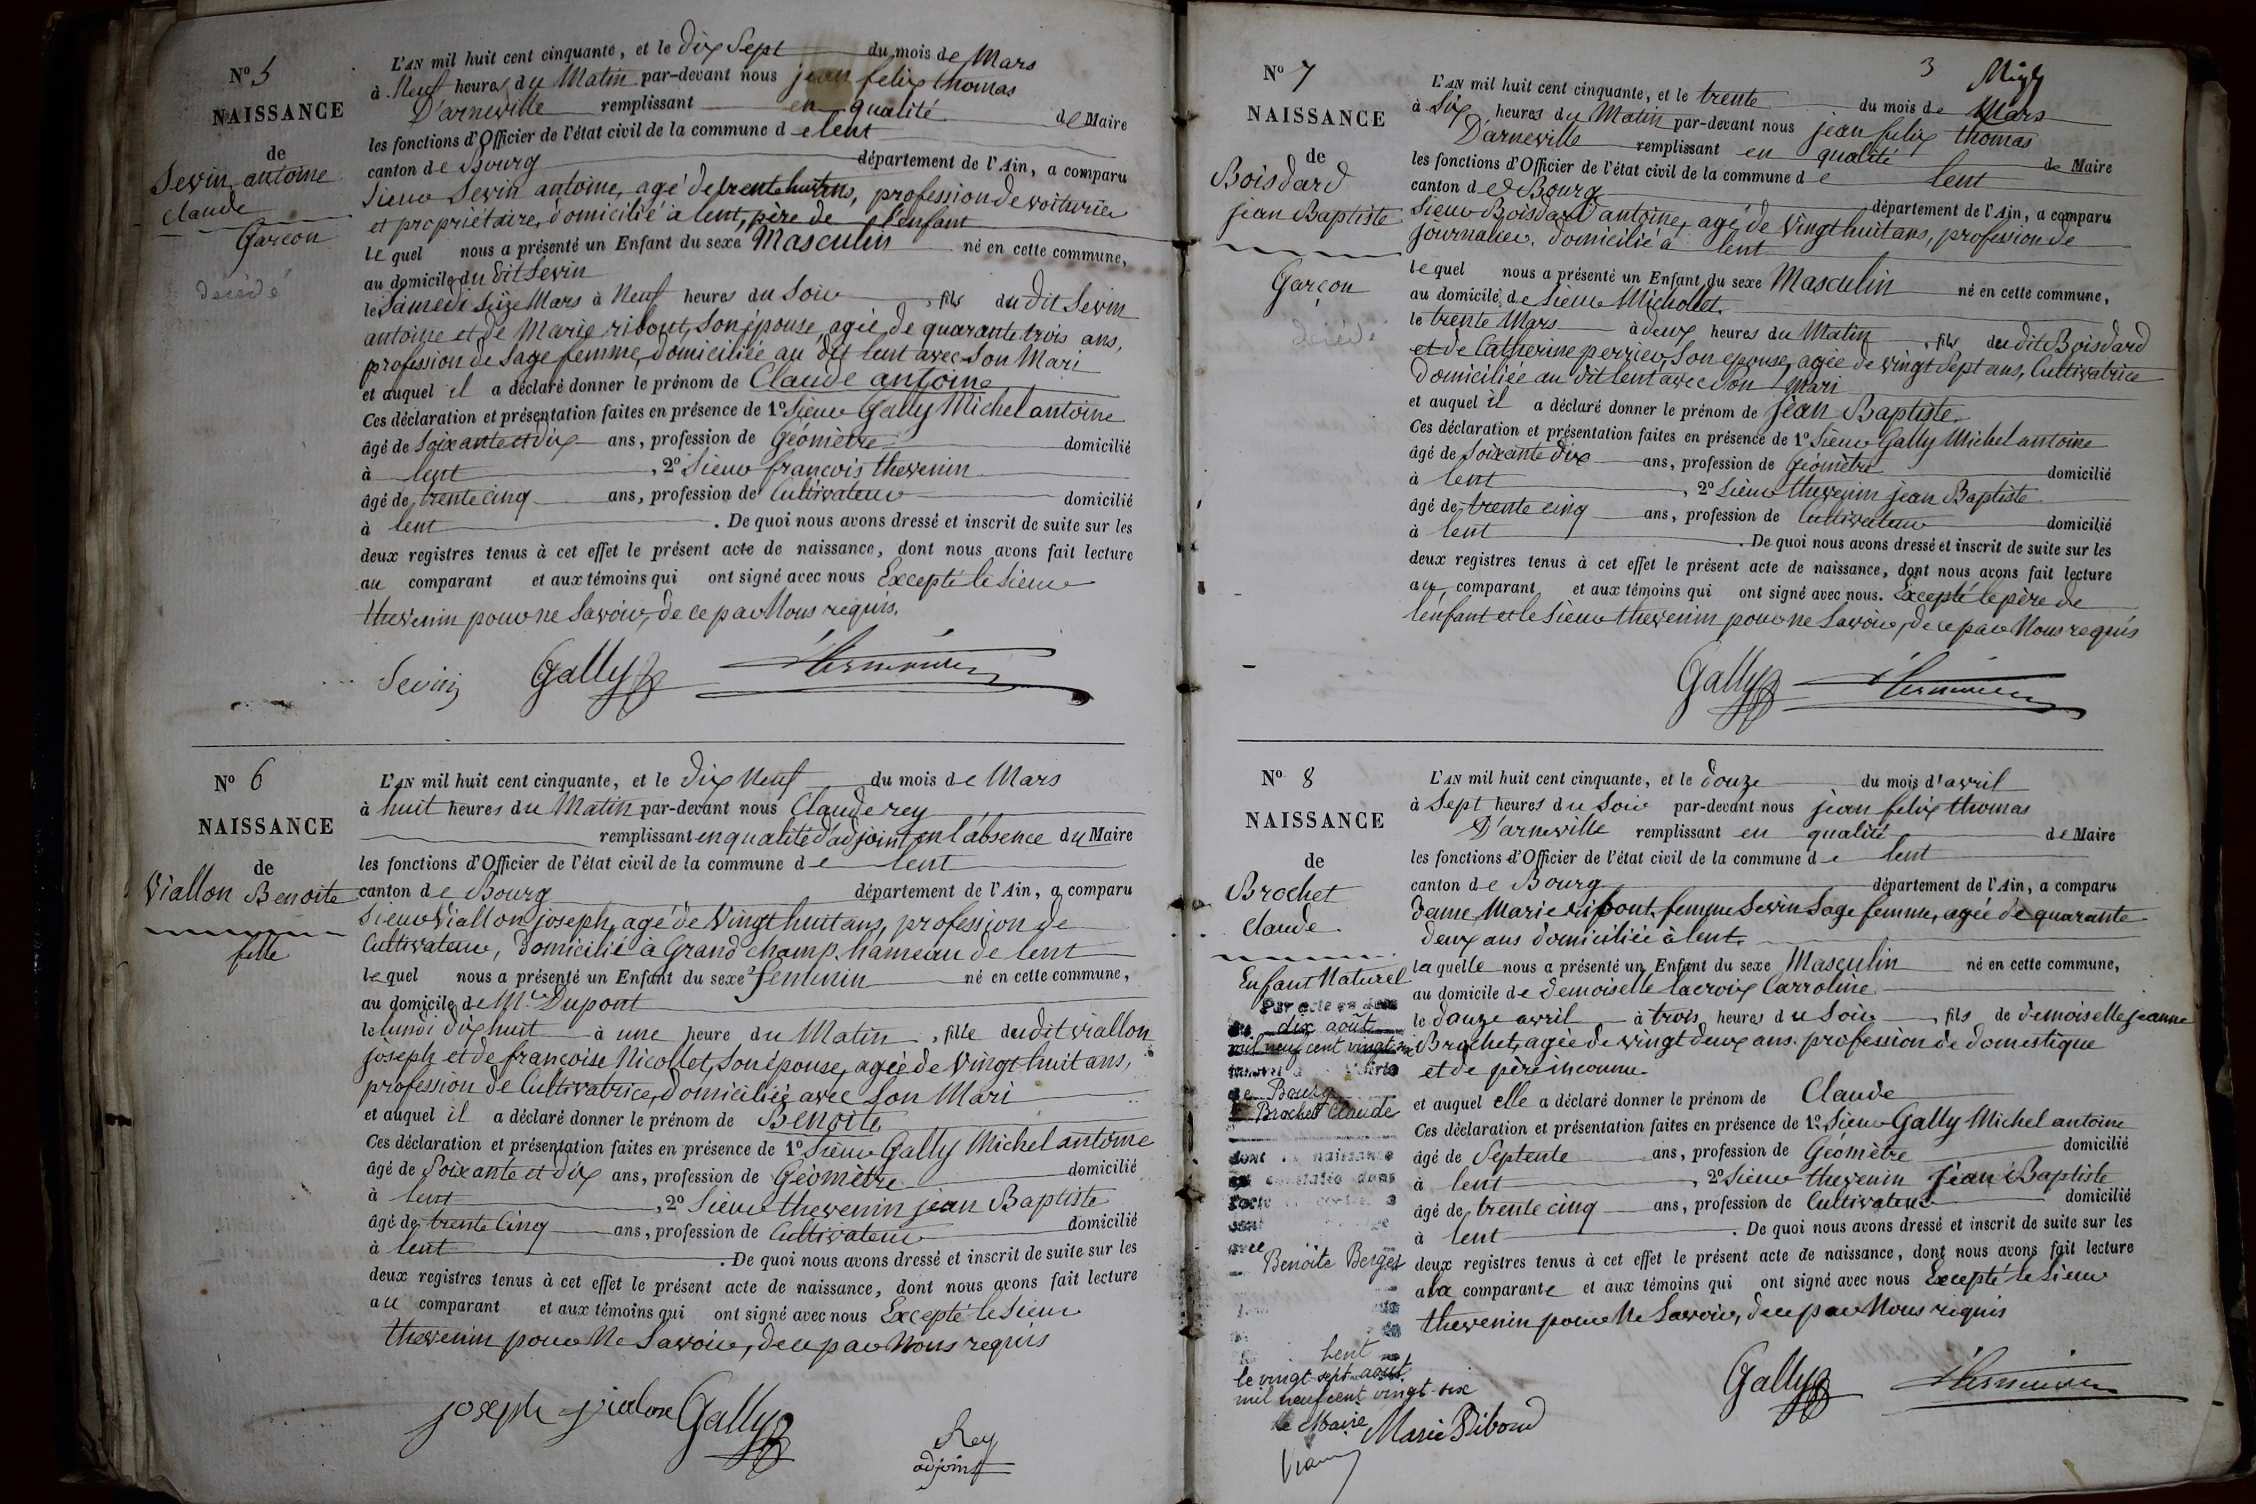 N° 5
NAISSANCE
de
Sevin antoine
Claude
Garcon
décédé
L'AN mil huit cent cinquante, et le dix Sept du mois de Mars
à Neuf heures du Matin par-devant nous jean felix thomas
D'arneville remplissant en qualité de Maire
les fonctions d'Officier de l'état civil de la commune de lent
canton de Bourg département de l'Ain, a comparu
Sieur Sevin antoine, agé de trente huit ans, profession de voiturier
et propriétaire, domicilié à lent, père de l'enfant
lequel nous a présenté un Enfant du sexe Masculin né en cette commune,
au domicile du dit Sevin
le Samedi Seize Mars à Neuf heures du Soir, fils du dit Sevin
antoine et de Marie ribout, Son épouse, agée de quarante trois ans,
profession de Sage femme, domiciliée au dit lent avec Son Mari
et auquel il a déclaré donner le prénom de Claude antoine
Ces déclaration et présentation faites en présence de 1° Sieur Gally Michel antoine
âgé de Soixante et dix ans, profession de Géomètre domicilié
à lent, 2° Sieur francois thevenin
âgé de trente cinq ans, profession de Cultivateur domicilié
à lent. De quoi nous avons dressé et inscrit de suite sur les
deux registres tenus à cet effet le présent acte de naissance, dont nous avons fait lecture
au comparant et aux témoins qui ont signé avec nous Excepté le Sieur
thevenin pour ne Savoir, de ce par Nous requis.
Sevin Gally
N° 6
NAISSANCE
de
Viallon Benoite
fille
L'AN mil huit cent cinquante, et le dix Neuf du mois de Mars
à huit heures du Matin par-devant nous Claude rey
remplissant en qualité d'adjoint en l'absence du Maire
les fonctions d'Officier de l'état civil de la commune de lent
canton de Bourg département de l'Ain, a comparu
Sieur Viallon joseph, agé de Vingt huit ans, profession de
Cultivateur, domicilié à Grand champ, hameau de lent
lequel nous a présenté un Enfant du sexe feminin né en cette commune,
au domicile de Mr Dupont
le lundi dix huit à une heure du Matin, fille du dit viallon
joseph et de francoise Nicollet, Son épouse, agée de Vingt huit ans,
profession de Cultivatrice, domiciliée avec Son Mari
et auquel il a déclaré donner le prénom de Benoite
Ces déclaration et présentation faites en présence de 1° Sieur Gally Michel antoine
âgé de Soixante et dix ans, profession de Géomètre domicilié
à lent, 2° Sieur thevenin jean Baptiste
âgé de trente Cinq ans, profession de Cultivateur domicilié
à lent. De quoi nous avons dressé et inscrit de suite sur les
deux registres tenus à cet effet le présent acte de naissance, dont nous avons fait lecture
au comparant et aux témoins qui ont signé avec nous Excepté le Sieur
thevenin pour Ne Savoir, de ce par Nous requis
joseph vialon Gally
Rey
adjoint
3
N° 7
NAISSANCE
de
Boisdard
jean Baptiste
Garçon
décédé
L'AN mil huit cent cinquante, et le trente du mois de Mars
à Six heures du Matin par-devant nous jean felix thomas
D'arneville remplissant en qualité de Maire
les fonctions d'Officier de l'état civil de la commune de lent
canton de Bourg département de l'Ain, a comparu
Sieur Boisdard antoine, agé de Vingt huit ans, profession de
journalier, domicilié à lent
lequel nous a présenté un Enfant du sexe Masculin né en cette commune,
au domicile de Sieur Michollet
le trente Mars à deux heures du Matin, fils du dit Boisdard
et de Catherine perrier Son epouse, agée de vingt Sept ans, Cultivatrice
domiciliée au dit lent avec Son Mari
et auquel il a déclaré donner le prénom de jean Baptiste
Ces déclaration et présentation faites en présence de 1° Sieur Gally Michel antoine
âgé de Soixante dix ans, profession de Géomètre domicilié
à lent, 2° Sieur thevenin jean Baptiste
âgé de trente cinq ans, profession de Cultivateur domicilié
à lent. De quoi nous avons dressé et inscrit de suite sur les
deux registres tenus à cet effet le présent acte de naissance, dont nous avons fait lecture
au comparant et aux témoins qui ont signé avec nous. Excepté le père de
l'enfant et le Sieur thevenin pour ne Savoir, de ce par Nous requis
Gally
N° 8
NAISSANCE
de
Brochet
Claude
Enfant Naturel
Par acte en date
du dix août
mil neuf cent vingt six
de Bourg
Brochet Claude
dont la naissance
est constatée dans
l'acte
Benoite Berger
Lent
le vingt sept août
mil neuf cent vingt-six
Le Maire
L'AN mil huit cent cinquante, et le douze du mois d'avril
à Sept heures du Soir par-devant nous jean felix thomas
D'arneville remplissant en qualité de Maire
les fonctions d'Officier de l'état civil de la commune de lent
canton de Bourg département de l'Ain, a comparu
dame Marie ribout femme Sevin Sage femme, agée de quarante
deux ans domiciliée à lent.
laquelle nous a présenté un Enfant du sexe Masculin né en cette commune,
au domicile de demoiselle lacroix Carroline
le douze avril à trois heures du Soir, fils de demoiselle jeanne
Brochet, agée de vingt deux ans. profession de domestique
et de père inconnu.
et auquel elle a déclaré donner le prénom de Claude
Ces déclaration et présentation faites en présence de 1° Sieur Gally Michel antoine
âgé de Septente ans, profession de Géomètre domicilié
à lent, 2° Sieur thevenin jean Baptiste
âgé de trente cinq ans, profession de Cultivateur domicilié
à lent. De quoi nous avons dressé et inscrit de suite sur les
deux registres tenus à cet effet le présent acte de naissance, dont nous avons fait lecture
a la comparante et aux témoins qui ont signé avec nous Excepté le Sieur
thevenin pour Ne Savoir, de ce par Nous requis
Gally
Marie Riboud